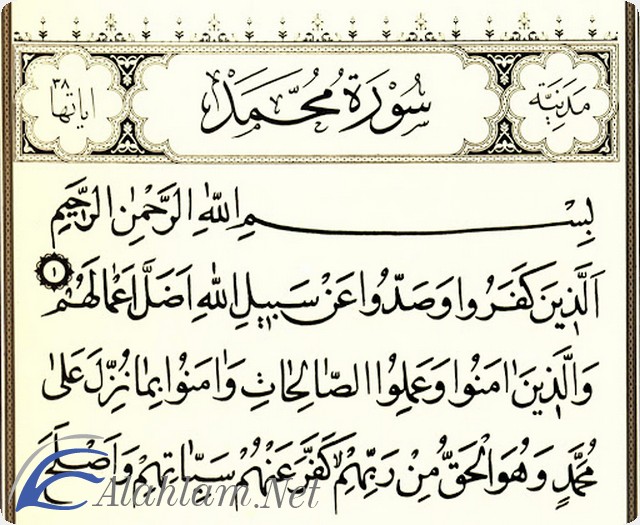 مَدَنِيَّة
سُورَةُ مُحَمَّد
اياتها ٣٨
بِسْمِ اللّٰهِ الرَّحْمٰنِ الرَّحٖيمِ
اَلَّذٖينَ كَفَرُوا وَصَدُّوا عَنْ سَبٖيلِ اللّٰهِ اَضَلَّ اَعْمَالَهُمْ ١
وَالَّذٖينَ اٰمَنُوا وَعَمِلُوا الصَّالِحَاتِ وَاٰمَنُوا بِمَا نُزِّلَ عَلٰى
مُحَمَّدٍ وَهُوَ الْحَقُّ مِنْ رَبِّهِمْ كَفَّرَ عَنْهُمْ سَيِّاٰتِهِمْ وَاَصْلَحَ
Alahlam.Net